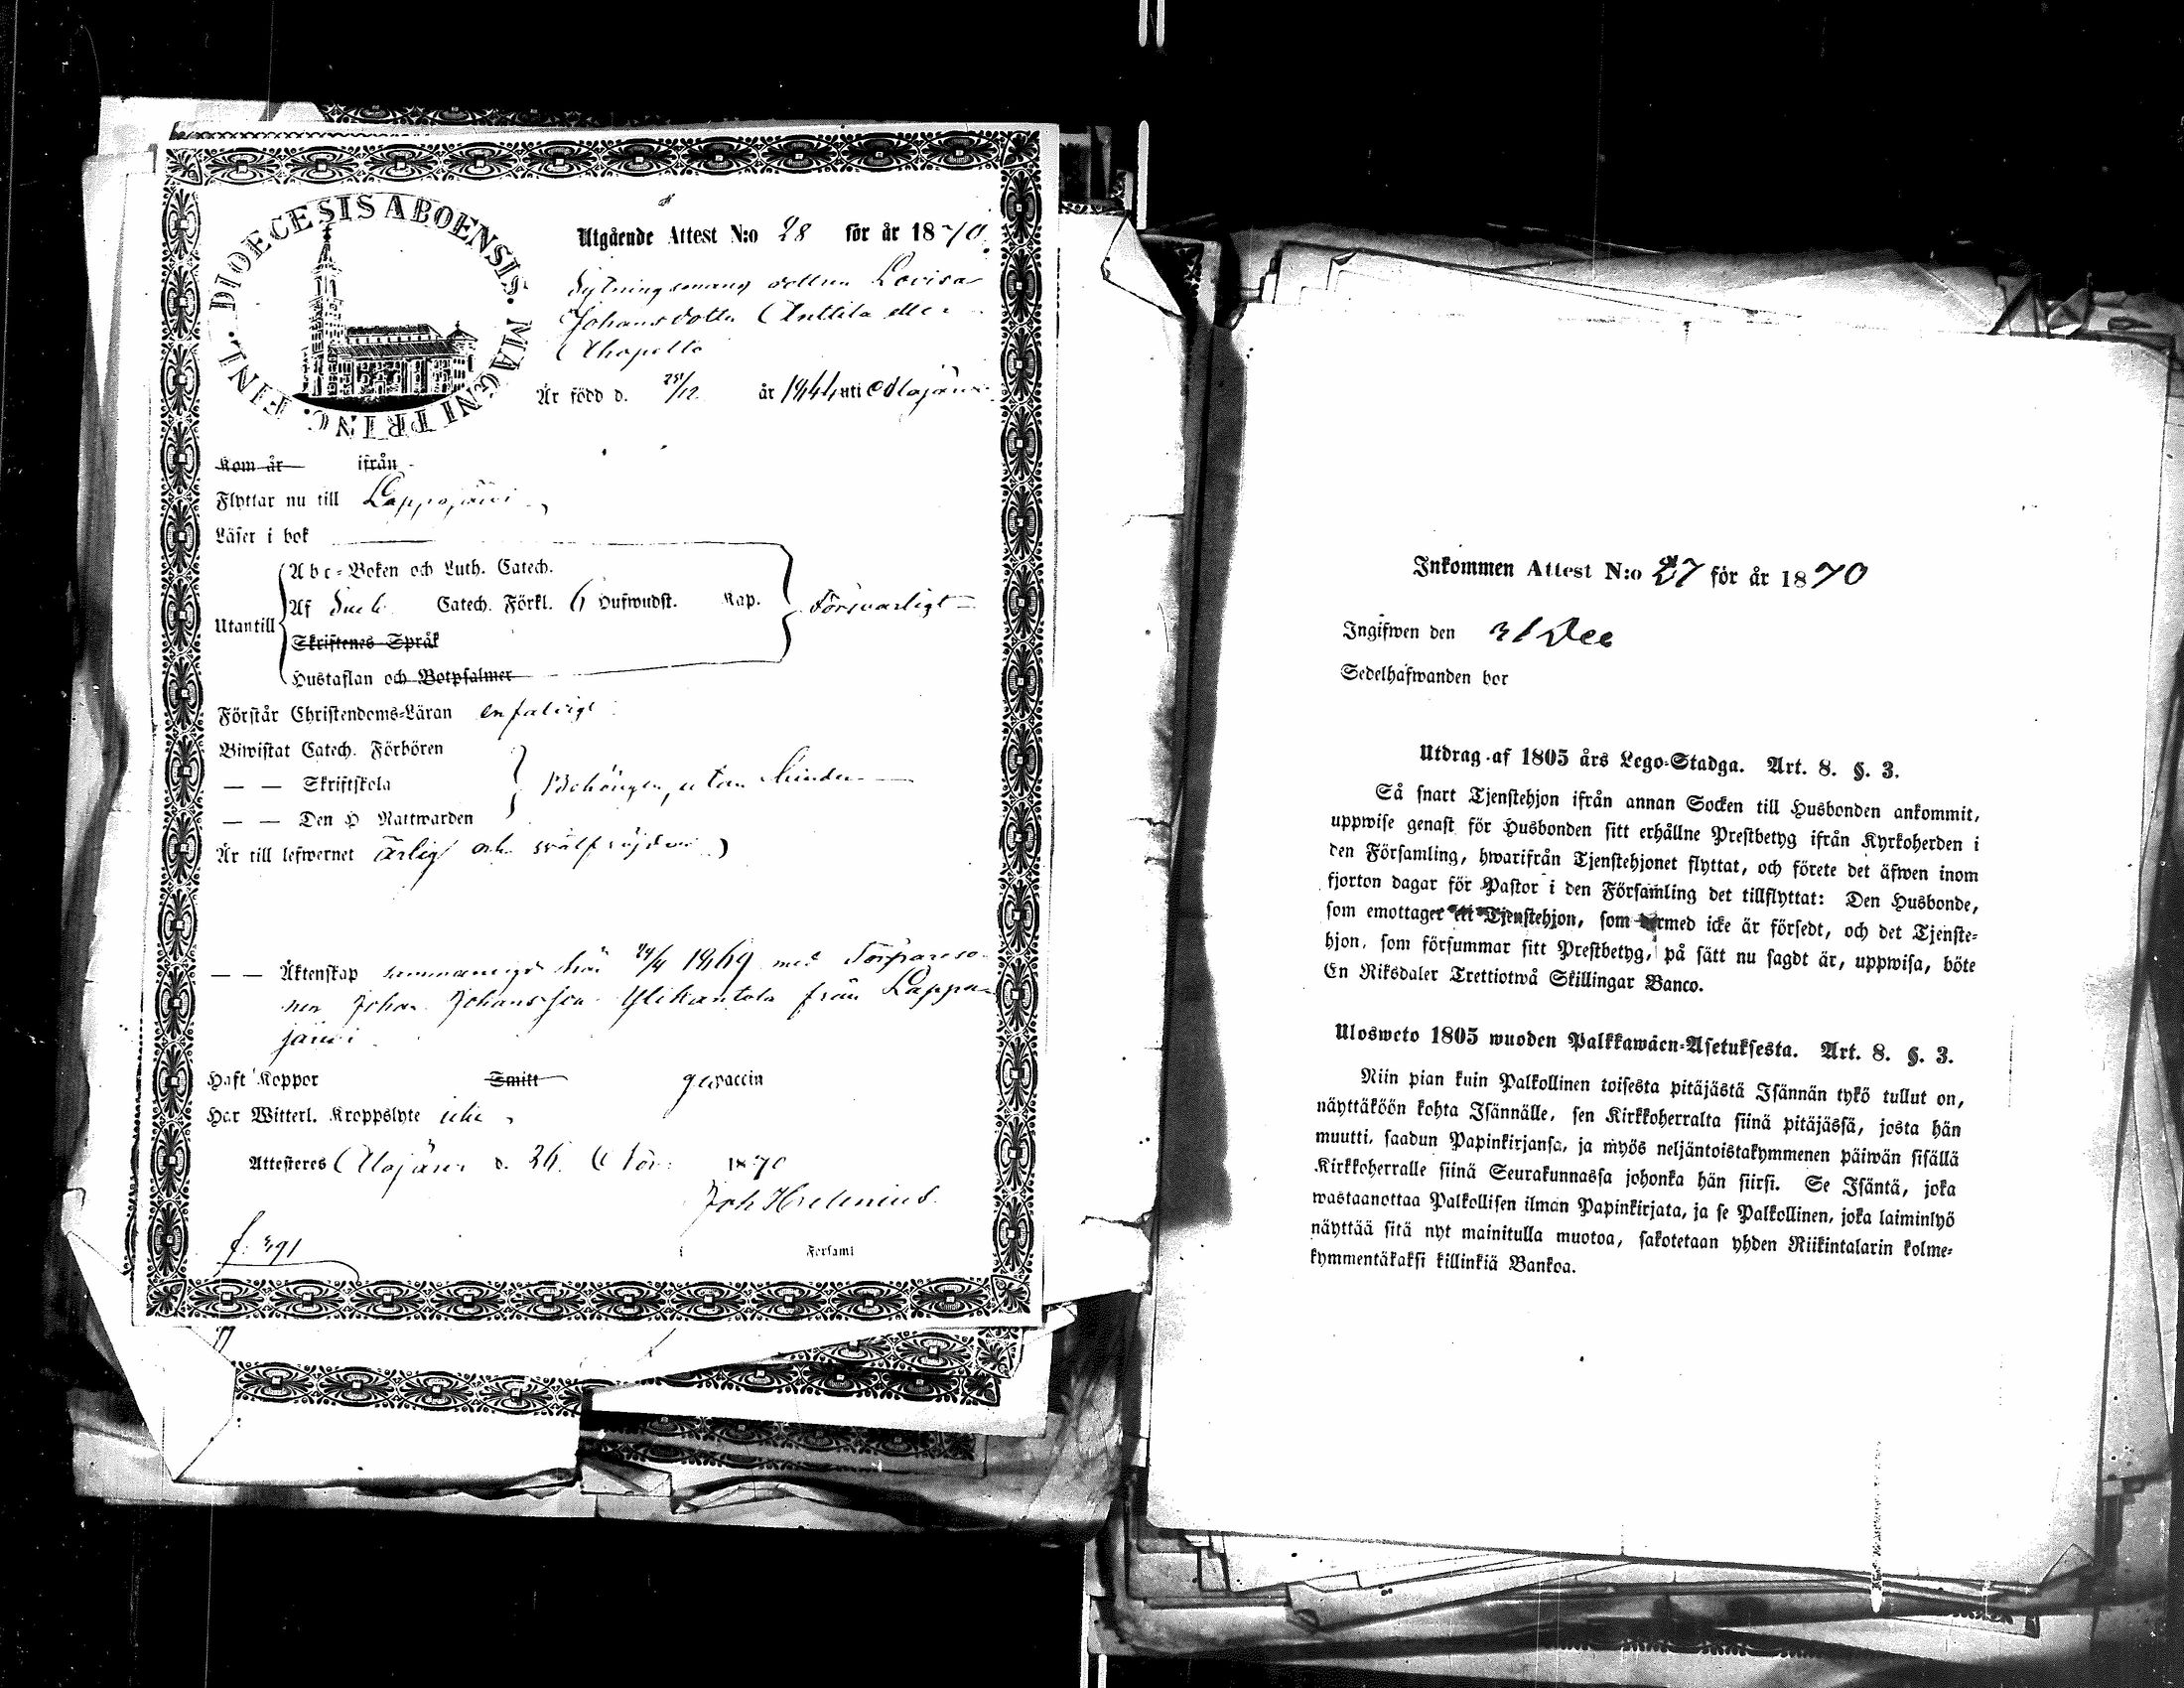 DIOECESIS ABOENSIS. MAGNI PRINC. FINL.
Utgående Attest N:o 28 för år 1870.
Sytningsmans dottren Lovisa
Johansdotter Anttila eller
Ahopelto
Är född d. 25/12 år 1844 uti Alajärvi
Kom år ifrån
Flyttar nu till Lappajärvi
Läser i bok
Abc-Boken och Luth. Catech.
Utantill Af Sveb. Catech. Förkl. 6 Hufwudst. Kap. Försvarligt
Skriftenes Språk
Hustaflan och Botpsalmer
Förstår Christendoms-Läran enfaldigt
Biwistat Catech. Förhören
— — Skriftskola Behörigen, utan hinder
— — Den H Nattwarden
Är till lefwernet ärlig och välfräjdad
— — Äktenskap sammanvigd här 24/4 1869 med Torpareso-
nen Johan Johansson Ylikantola från Lappa-
järvi
Haft Koppor Smitt vaccin
Har Witterl. Kroppslyte icke
Attesteres Alajärvi d. 26 1870
Joh Helenius
f. 391 Forsaml
Inkommen Attest N:o 27 för år 1870
Ingifwen den 31 Dec
Sedelhafwanden bor
Utdrag af 1805 års Lego-Stadga. Art. 8. §. 3.
Så snart Tjenstehjon ifrån annan Socken till Husbonden ankommit,
uppwise genast för Husbonden sitt erhållne Prestbetyg ifrån Kyrkoherden i
den Församling, hwarifrån Tjenstehjonet flyttat, och förete det äfwen inom
fjorton dagar för Pastor i den Församling det tillflyttat: Den Husbonde,
som emottager ett Tjenstehjon, som dermed icke är försedt, och det Tjenste-
hjon, som försummar sitt Prestbetyg, på sätt nu sagdt är, uppwisa, böte
En Riksdaler Trettiotwå Skillingar Banco.
Ulosweto 1805 wuoden Palkkawäen-Asetuksesta. Art. 8. §. 3.
Niin pian kuin Palkollinen toisesta pitäjästä Isännän tykö tullut on,
näyttäköön kohta Isännälle, sen Kirkkoherralta siinä pitäjässä, josta hän
muutti, saadun Papinkirjansa, ja myös neljäntoistakymmenen päiwän sisällä
Kirkkoherralle siinä Seurakunnassa johonka hän siirsi. Se Isäntä, joka
wastaanottaa Palkollisen ilman Papinkirjata, ja se Palkollinen, joka laiminlyö
näyttää sitä nyt mainitulla muotoa, sakotetaan yhden Riikintalarin kolme-
kymmentäkaksi killinkiä Bankoa.